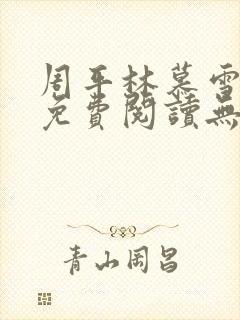 周平林慕雪
免費閱讀無
青山岡昌